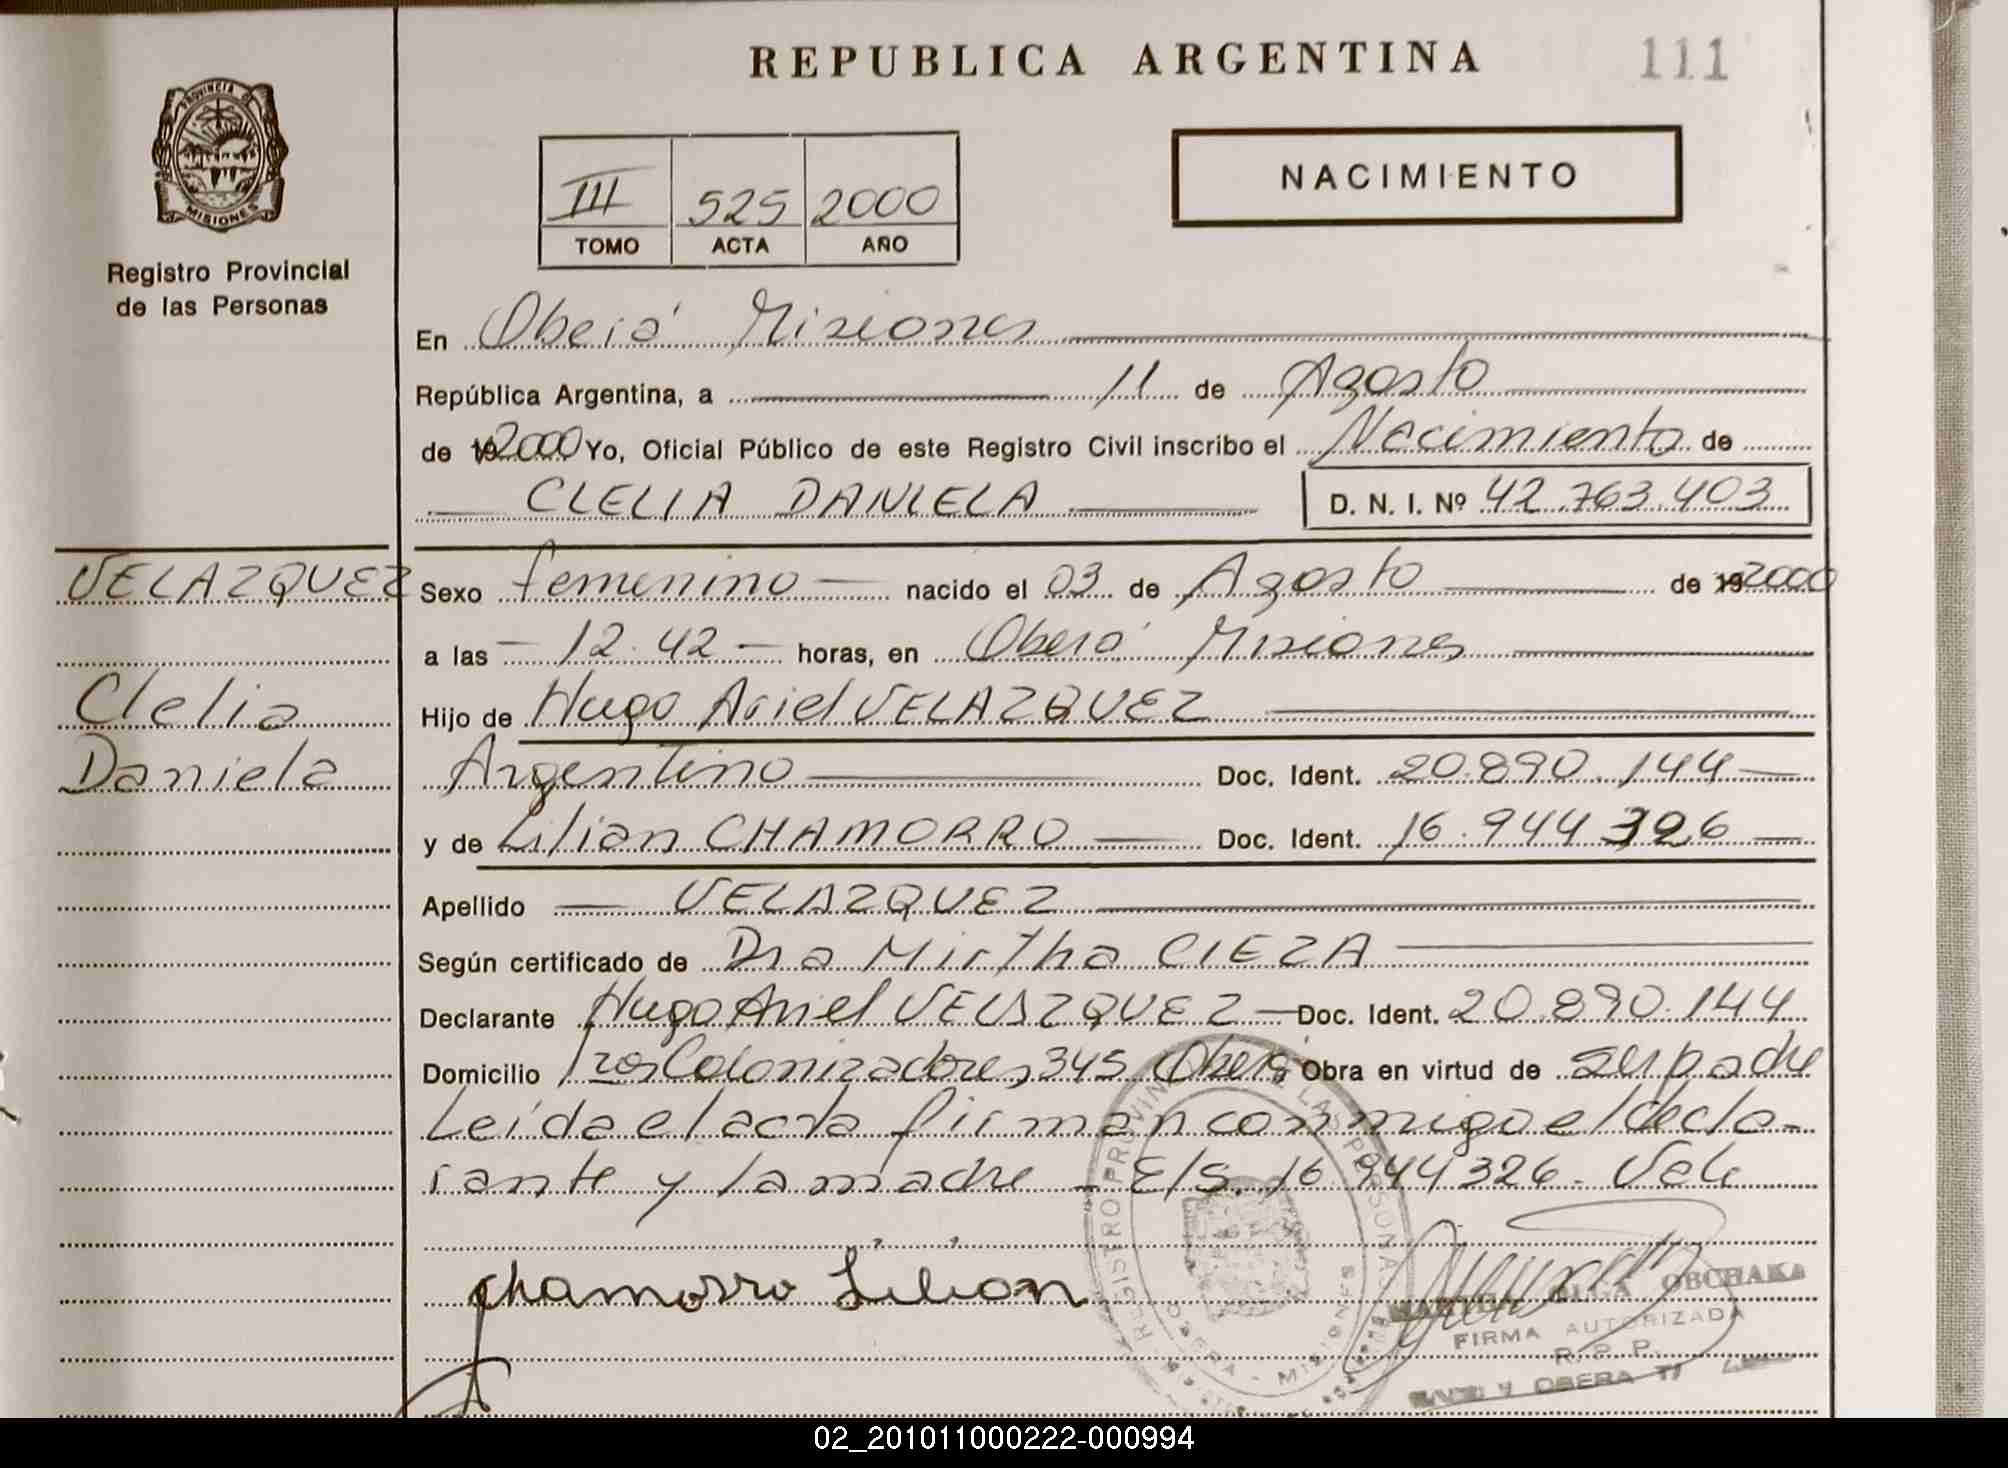 REPUBLICA ARGENTINA
111
PROVINCIA DE
MISIONES
Registro Provincial
de las Personas
NACIMIENTO
III 525 2000
TOMO ACTA AÑO
En Oberá Misiones
República Argentina, a 11 de Agosto
de 192000 Yo, Oficial Público de este Registro Civil inscribo el Nacimiento de
CLELIA DANIELA D. N. I. Nº 42.763.403
VELAZQUEZ
Clelia
Daniela
Sexo femenino nacido el 03 de Agosto de 192000
a las 12.42 horas, en Oberá Misiones
Hijo de Hugo Ariel VELAZQUEZ
Argentino Doc. Ident. 20.890.144
y de Lilian CHAMORRO Doc. Ident. 16.944 326
Apellido VELAZQUEZ
Según certificado de Dra Mirtha CIEZA
Declarante Hugo Ariel VELAZQUEZ Doc. Ident. 20.890.144
Domicilio Los Colonizadores 345 Oberá Obra en virtud de su padre
Leída el acta firman conmigo el decla-
rante y la madre - E/S. 16.944326. Vale
Chamorro Lilian
REGISTRO PROVINCIAL DE LAS PERSONAS
OBERA - MISIONES
OLGA OBCHAKA
FIRMA AUTORIZADA
R. P. P.
OBERA
02_201011000222-000994